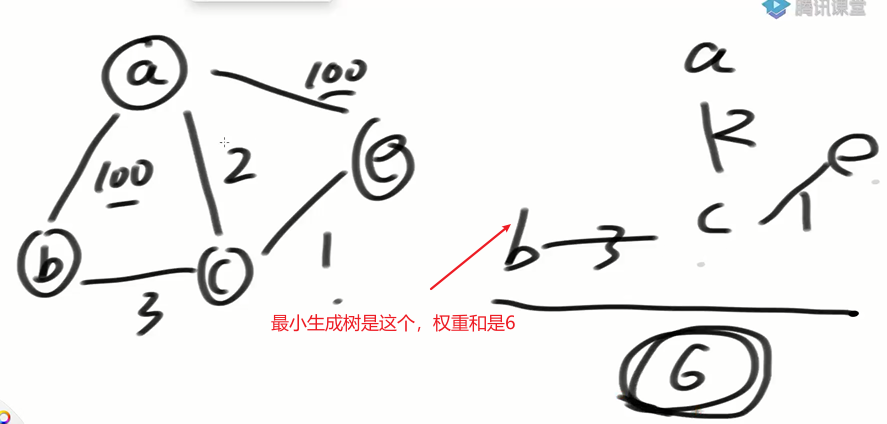 腾讯课堂
a
100
e
100
2
b
c
1
3
a
2
e
c
1
b
3
最小生成树是这个，权重和是6
6